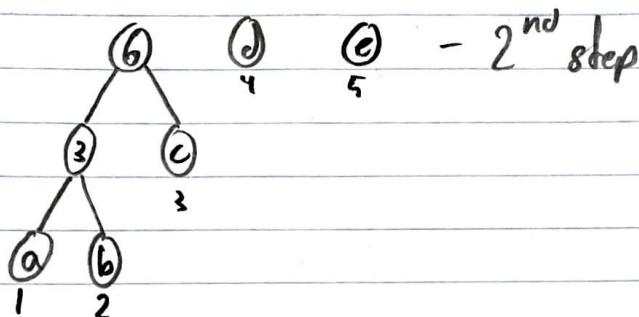 6 d e - 2nd step
4 5
3 c
3
a b
1 2